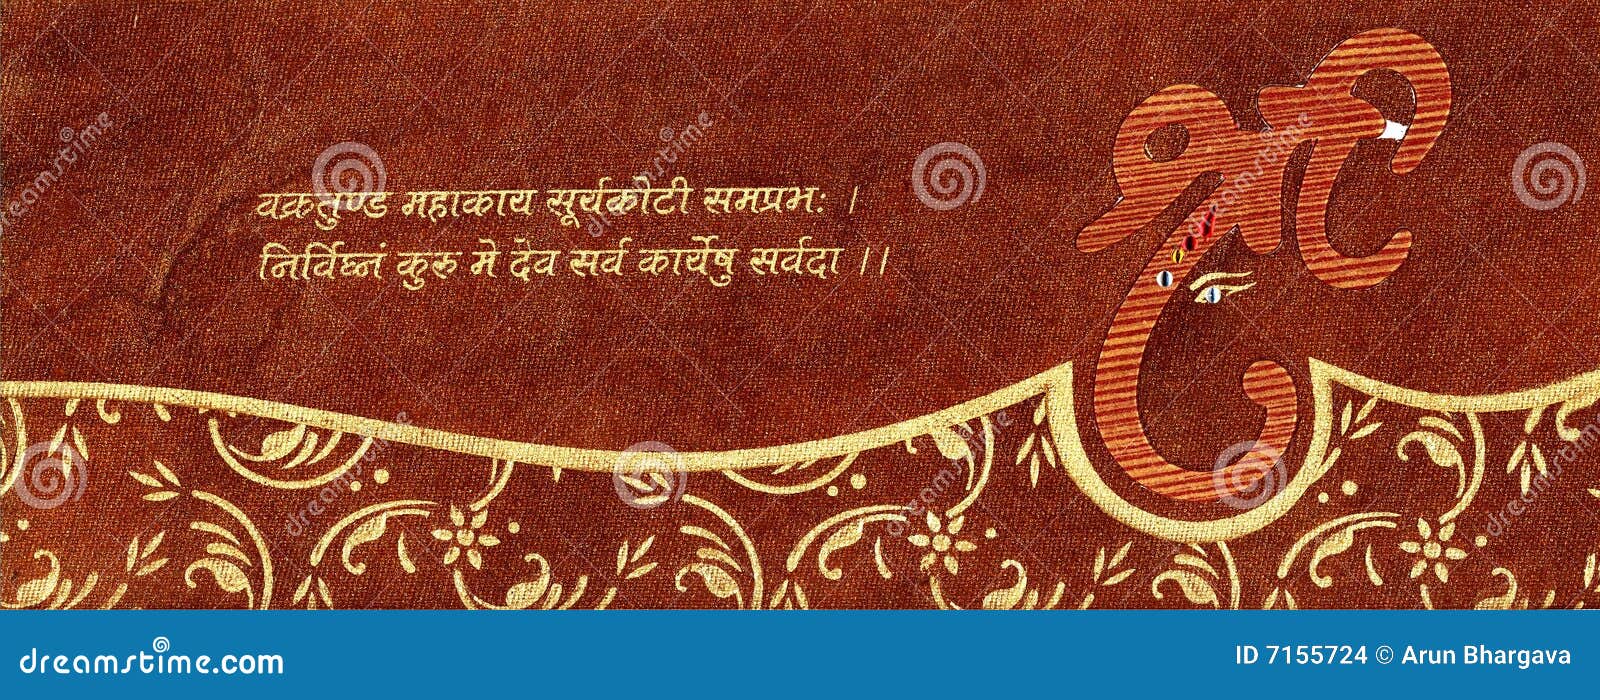 वक्रतुण्ड महाकाय सूर्यकोटी समप्रभः ।
निर्विघ्नं कुरु मे देव सर्व कार्येषु सर्वदा ।।
श्री
dreamstime.com
ID 7155724 © Arun Bhargava